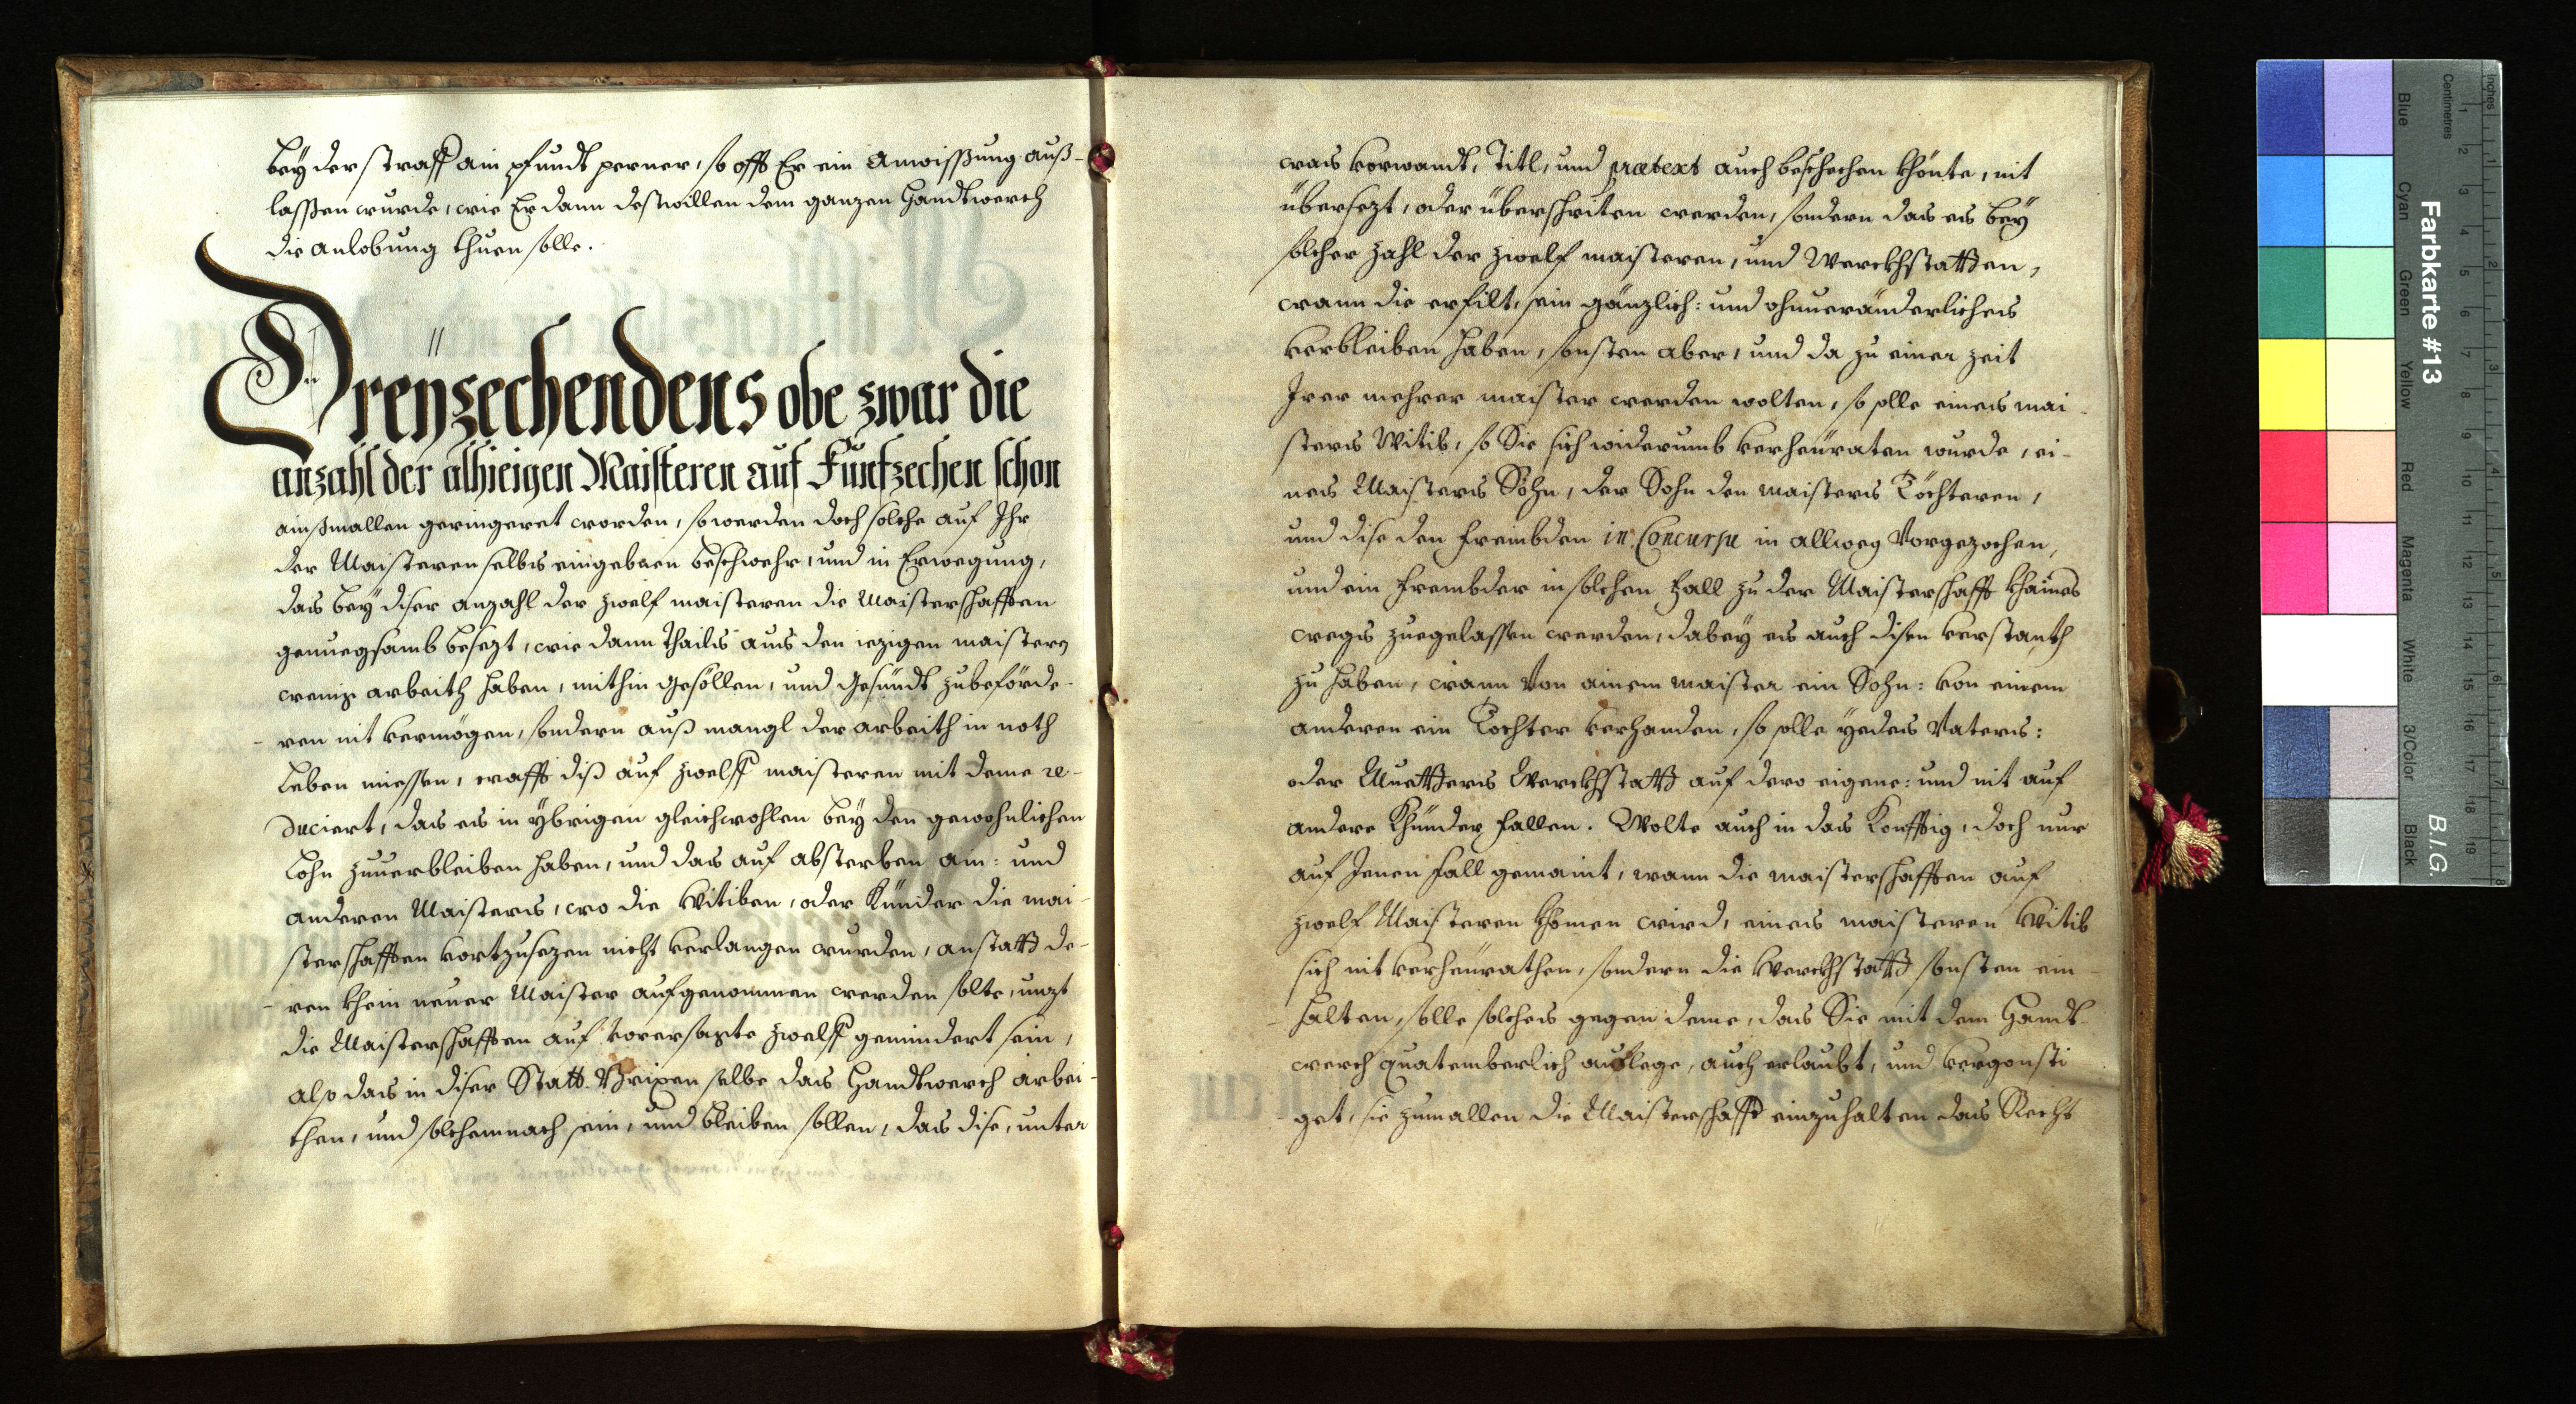 bey der straff ain pfundt perner, so offt Er ein Anweissung auß-
lassen wurde, wie Er dann destwillen dem ganzen Handtwerch
die anlobung thuen solle.
Dreyzechendens obe zwar die
anzahl der alhieigen Maisteren auf Fünfzechen schon
ainßmallen geringeret worden, so werden doch solche auf Ihr
der Maisteren selbs eingebnen beschwehr, und in Erwegung,
das bey diser anzahl der zwelf maisteren die Maisterschafften
genuegsamb besezt, wie dann thails aus den iezigen maistern
wenig arbeith haben, mithin gesöllen, und gesündt zubeförde-
ren nit vermögen, sondern auß mangl der arbeith in noth
Leben miessen, crafft diß auf zwelff maisteren mit deme re-
duciert, das es in ybrigen gleichwohlen bey den gewohnlichen
Lohn zuuerbleiben haben, und das auf absterben ain: und
anderen Maisters, wo die Witiben, oder Kinder die mai-
sterschafften vortzusezen nicht verlangen wurden, anstatt de-
ren khein neuer Maister aufgenommen werden solte, unzt
die Maisterschafften auf vorersagte zwelff gemindert sein,
also das in diser Statt Brixen selbe das Handtwerch arbei-
then, und solchemnach sein, und bleiben sollen, das dise, unter
was vorwandt, Titl, und prætext auch beschechen khönte, nit
übersezt, oder überschriten werden, sondern das es bey
solcher zahl der zwelf maisteren, und Werckhstatten,
wann die erfilt, sein gänzlich: und ohnueränderliches
verbleiben haben, sonsten aber, und da zu einer zeit
Irer mehrer maister werden wolten, so solle eines mai-
sters Witib, so Sie sich widerumb verheuraten wurde, ei-
nes Maisters Sohn, der Sohn den maisters Töchteren,
und dise den frembden in Concursu in allweg Vorgezochen,
und ein frembder in solchen fall zu der Maisterschafft khaines
wegs zuegelassen werden, dabey es auch disen verstanth
zu haben, wann von ainem maister ein Sohn: von einem
anderen ein Tochter verhanden, so solle yedes Vaters:
oder Muetters Werckhstatt auf dero eigene: und nit auf
andere Khinder fallen. Wolte auch in das Konfftig, doch nur
auf Jenen fall gemaint, wann die maisterschafften auf
zwelf Maisteren khomen wird, eines maisteren Witib
sich nit verheurathen, sondern die Werckhstatt sonsten ein-
halten, solle solches gegen deme, das Sie mit dem Handt-
werch quatemberlich auflege, auch erlaubt, und vergonsti
get, sie zumallen die Maisterschafft einzuhalten das Recht
Farbkarte #13
B.I.G.
Inches
Centimetres
Blue
Cyan
Green
Yellow
Red
Magenta
White
3/Color
Black
1 2 3 4 5 6 7 8 9 10 11 12 13 14 15 16 17 18 19